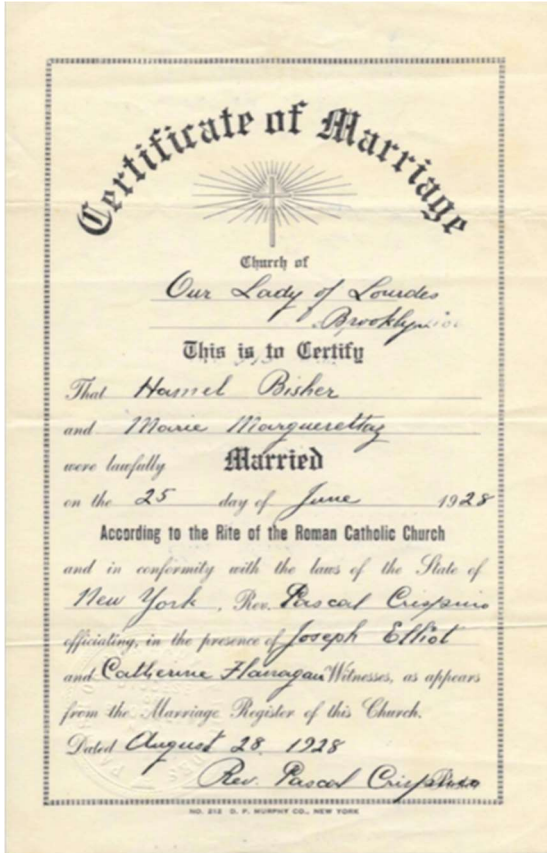 Certificate of Marriage
Church of
Our Lady of Lourdes
Brooklyn
This is to Certify
That Hamel Bisher
and Marie Marguerettaz
were lawfully Married
on the 25 day of June 1928
According to the Rite of the Roman Catholic Church
and in conformity with the laws of the State of
New York, Rev. Pascal Crispino
officiating, in the presence of Joseph Elliot
and Catherine Flanagan Witnesses, as appears
from the Marriage Register of this Church.
Dated August 28, 1928
Rev. Pascal Crispino
NO. 212 D. P. MURPHY CO., NEW YORK